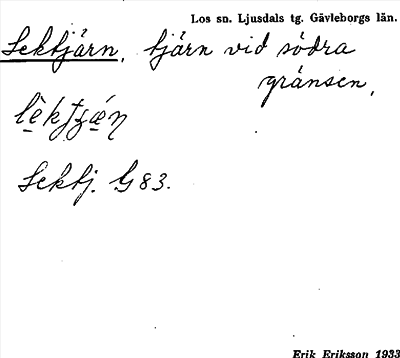 Los sn. Ljusdals tg. Gävleborgs län.
Lektjärn, tjärn vid södra
gränsen.
Lektj. G 83.
Erik Eriksson 1933